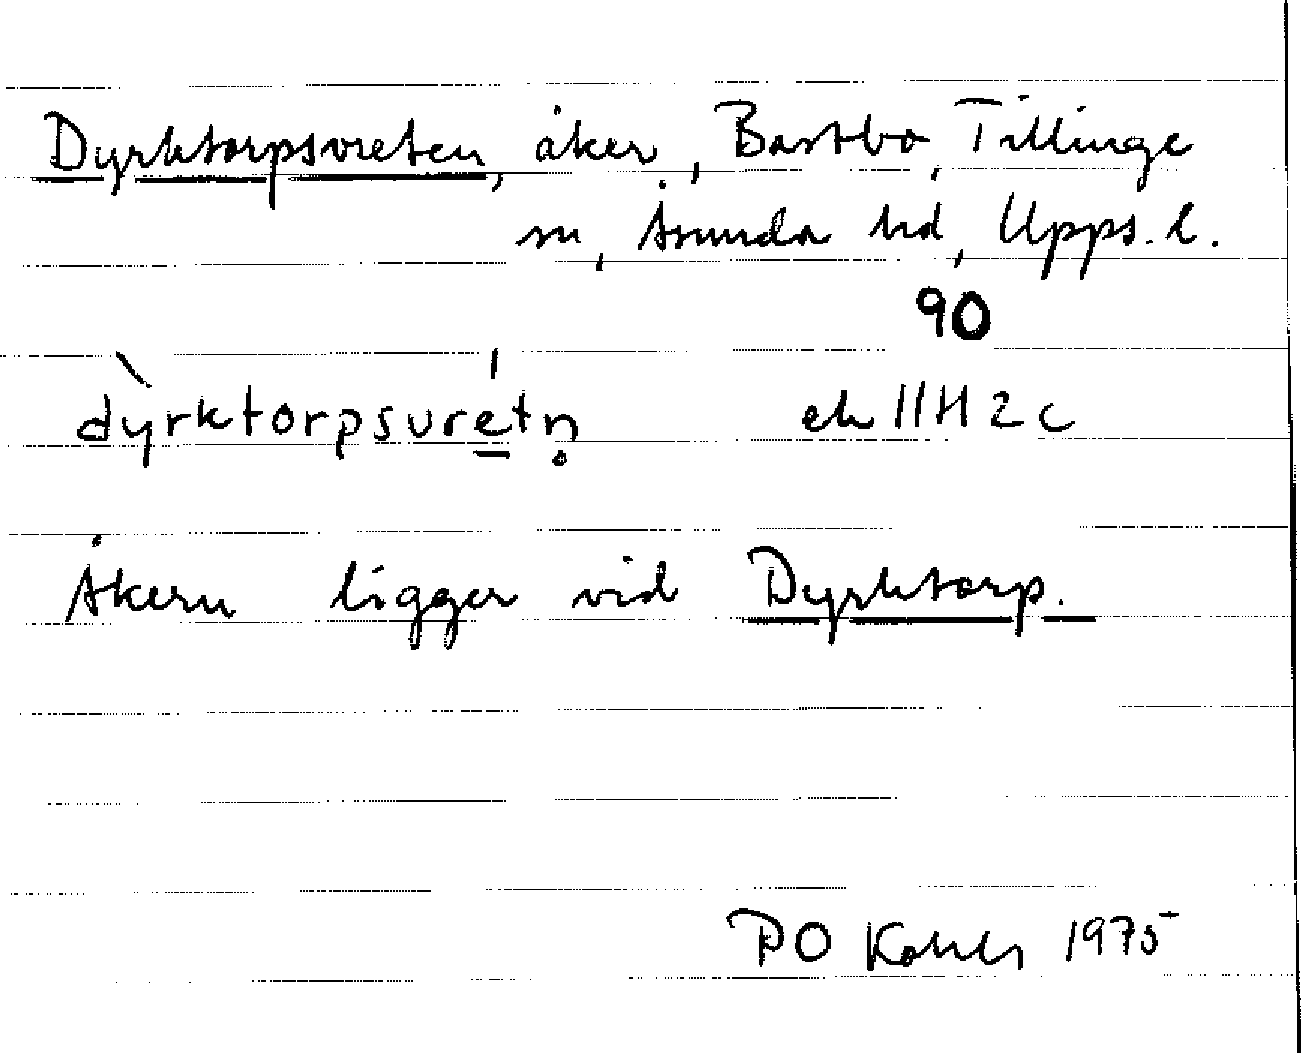 Dyrktorpsvreten, åker, Bastbo, Tillinge
sn, Åsunda hd, Upps. l.
90
dy̍rktorpsvre̠tn̥ ek 11H 2c
Åkern ligger vid Dyrktorp.
PO 1975